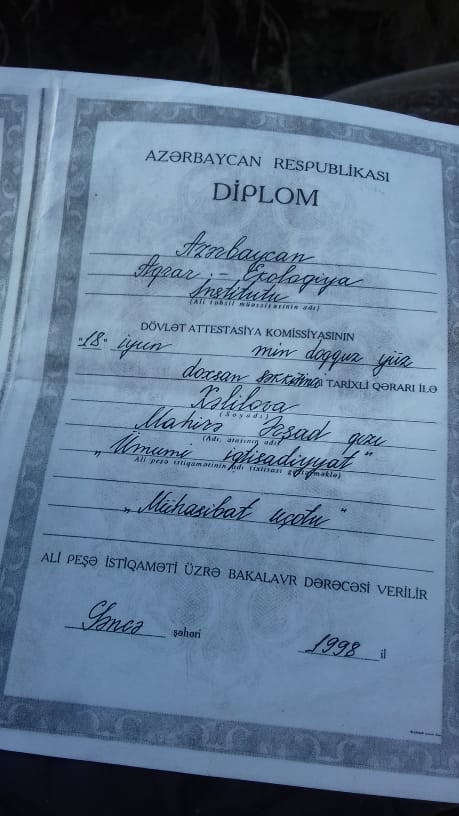 AZƏRBAYCAN RESPUBLİKASI
DİPLOM
Azərbaycan
Aqrar - Ekologiya
İnstitutu
(Ali təhsil müəssisəsinin adı)
DÖVLƏT ATTESTASİYA KOMİSSİYASININ
"18" iyun min doqquz yüz
doxsan səkkizinci TARİXLİ QƏRARI İLƏ
Xəlilova
(Soyadı)
Mahirə qızı
(Adı, atasının adı)
"Ümumi iqtisadiyyat"
Ali peşə istiqamətinin adı (ixtisası göstərilməklə)
"Mühasibat uçotu"
ALİ PEŞƏ İSTİQAMƏTİ ÜZRƏ BAKALAVR DƏRƏCƏSİ VERİLİR
Gəncə şəhəri
1998 il